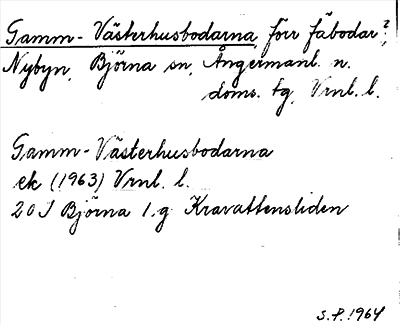 Gamm-Västerhusbodarna, förr fäbodar?,
Nybyn, Björna sn, Ångermanl. n.
doms. tg, Vrnl. l.
Gamm-Västerhusbodarna
ek (1963) Vrnl. l.
20 J Björna 1.g Kravattensliden
S.P. 1964